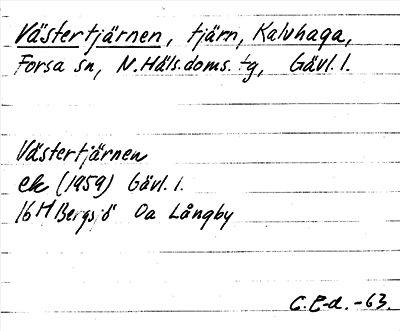 Västertjärnen, tjärn, Kalvhaga,
Forsa sn, N.Häls.doms.tg, Gävl.l.
Västertjärnen
ek (1959) Gävl.l.
16H Bergsjö 0a Långby
C.E-d. -63.